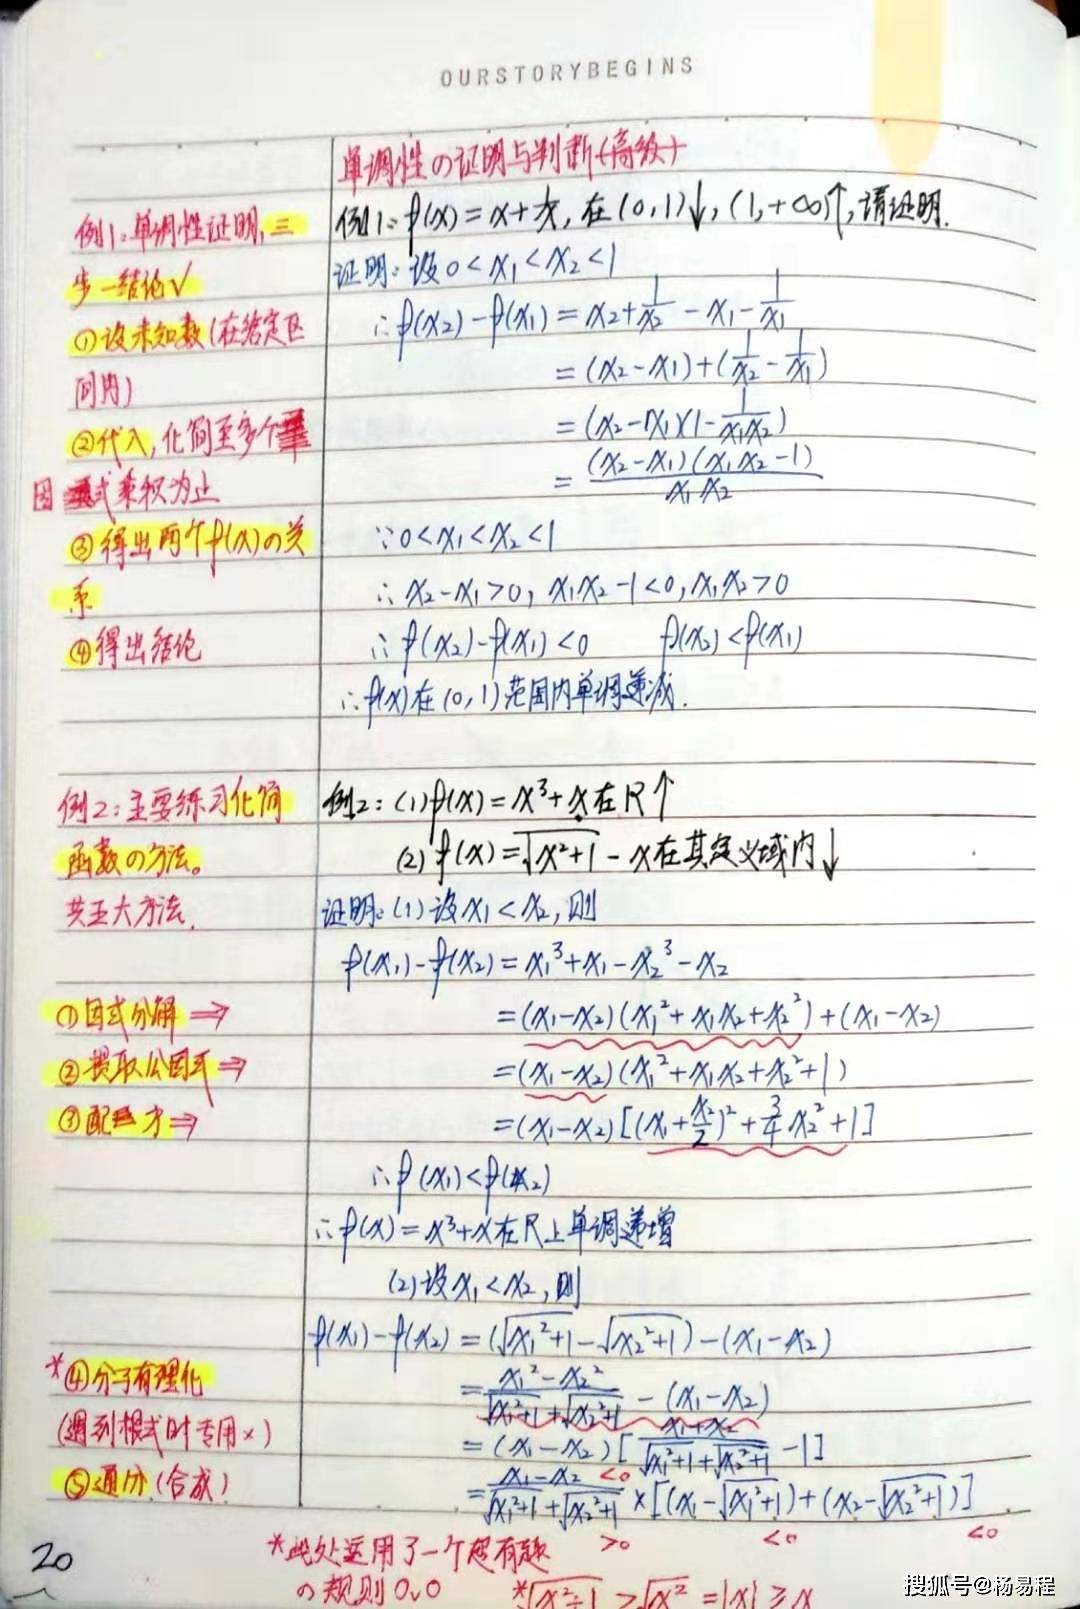 OURSTORYBEGINS
单调性の证明与判断(高级)
例1:单调性证明,三
步一结论√
①设未知数(在给定区
间内)
②代入,化简至多个
因式乘积为止
③得出两个f(x)の关
系
④得出结论
例1:f(x)=x+1/x,在(0,1)↓,(1,+∞)↑,请证明.
证明:设0<x₁<x₂<1
∴f(x₂)-f(x₁)=x₂+1/x₂-x₁-1/x₁
=(x₂-x₁)+(1/x₂-1/x₁)
=(x₂-x₁)(1-1/x₁x₂)
=(x₂-x₁)(x₁x₂-1)/x₁x₂
∵0<x₁<x₂<1
∴x₂-x₁>0,x₁x₂-1<0,x₁x₂>0
∴f(x₂)-f(x₁)<0 f(x₂)<f(x₁)
∴f(x)在(0,1)范围内单调递减.
例2:主要练习化简
函数の方法。
共五大方法.
①因式分解⇒
②提取公因式⇒
③配方⇒
*④分子有理化
(遇到根式时专用×)
⑤通分(合成)
例2:(1)f(x)=x³+x在R↑
(2)f(x)=√(x²+1)-x在其定义域内↓
证明:(1)设x₁<x₂,则
f(x₁)-f(x₂)=x₁³+x₁-x₂³-x₂
=(x₁-x₂)(x₁²+x₁x₂+x₂²)+(x₁-x₂)
=(x₁-x₂)(x₁²+x₁x₂+x₂²+1)
=(x₁-x₂)[(x₁+x₂/2)²+3/4x₂²+1]
∴f(x₁)<f(x₂)
∴f(x)=x³+x在R上单调递增
(2)设x₁<x₂,则
f(x₁)-f(x₂)=(√(x₁²+1)-√(x₂²+1))-(x₁-x₂)
=(x₁²-x₂²)/(√(x₁²+1)+√(x₂²+1))-(x₁-x₂)
=(x₁-x₂)[(x₁+x₂)/(√(x₁²+1)+√(x₂²+1))-1]
=(x₁-x₂)/(√(x₁²+1)+√(x₂²+1))×[(x₁-√(x₁²+1))+(x₂-√(x₂²+1))]
<0
>0 <0 <0
*此处运用了一个超有趣
の规则0v0
*√(x²+1)>√x²=|x|≥x
20
搜狐号@杨易程